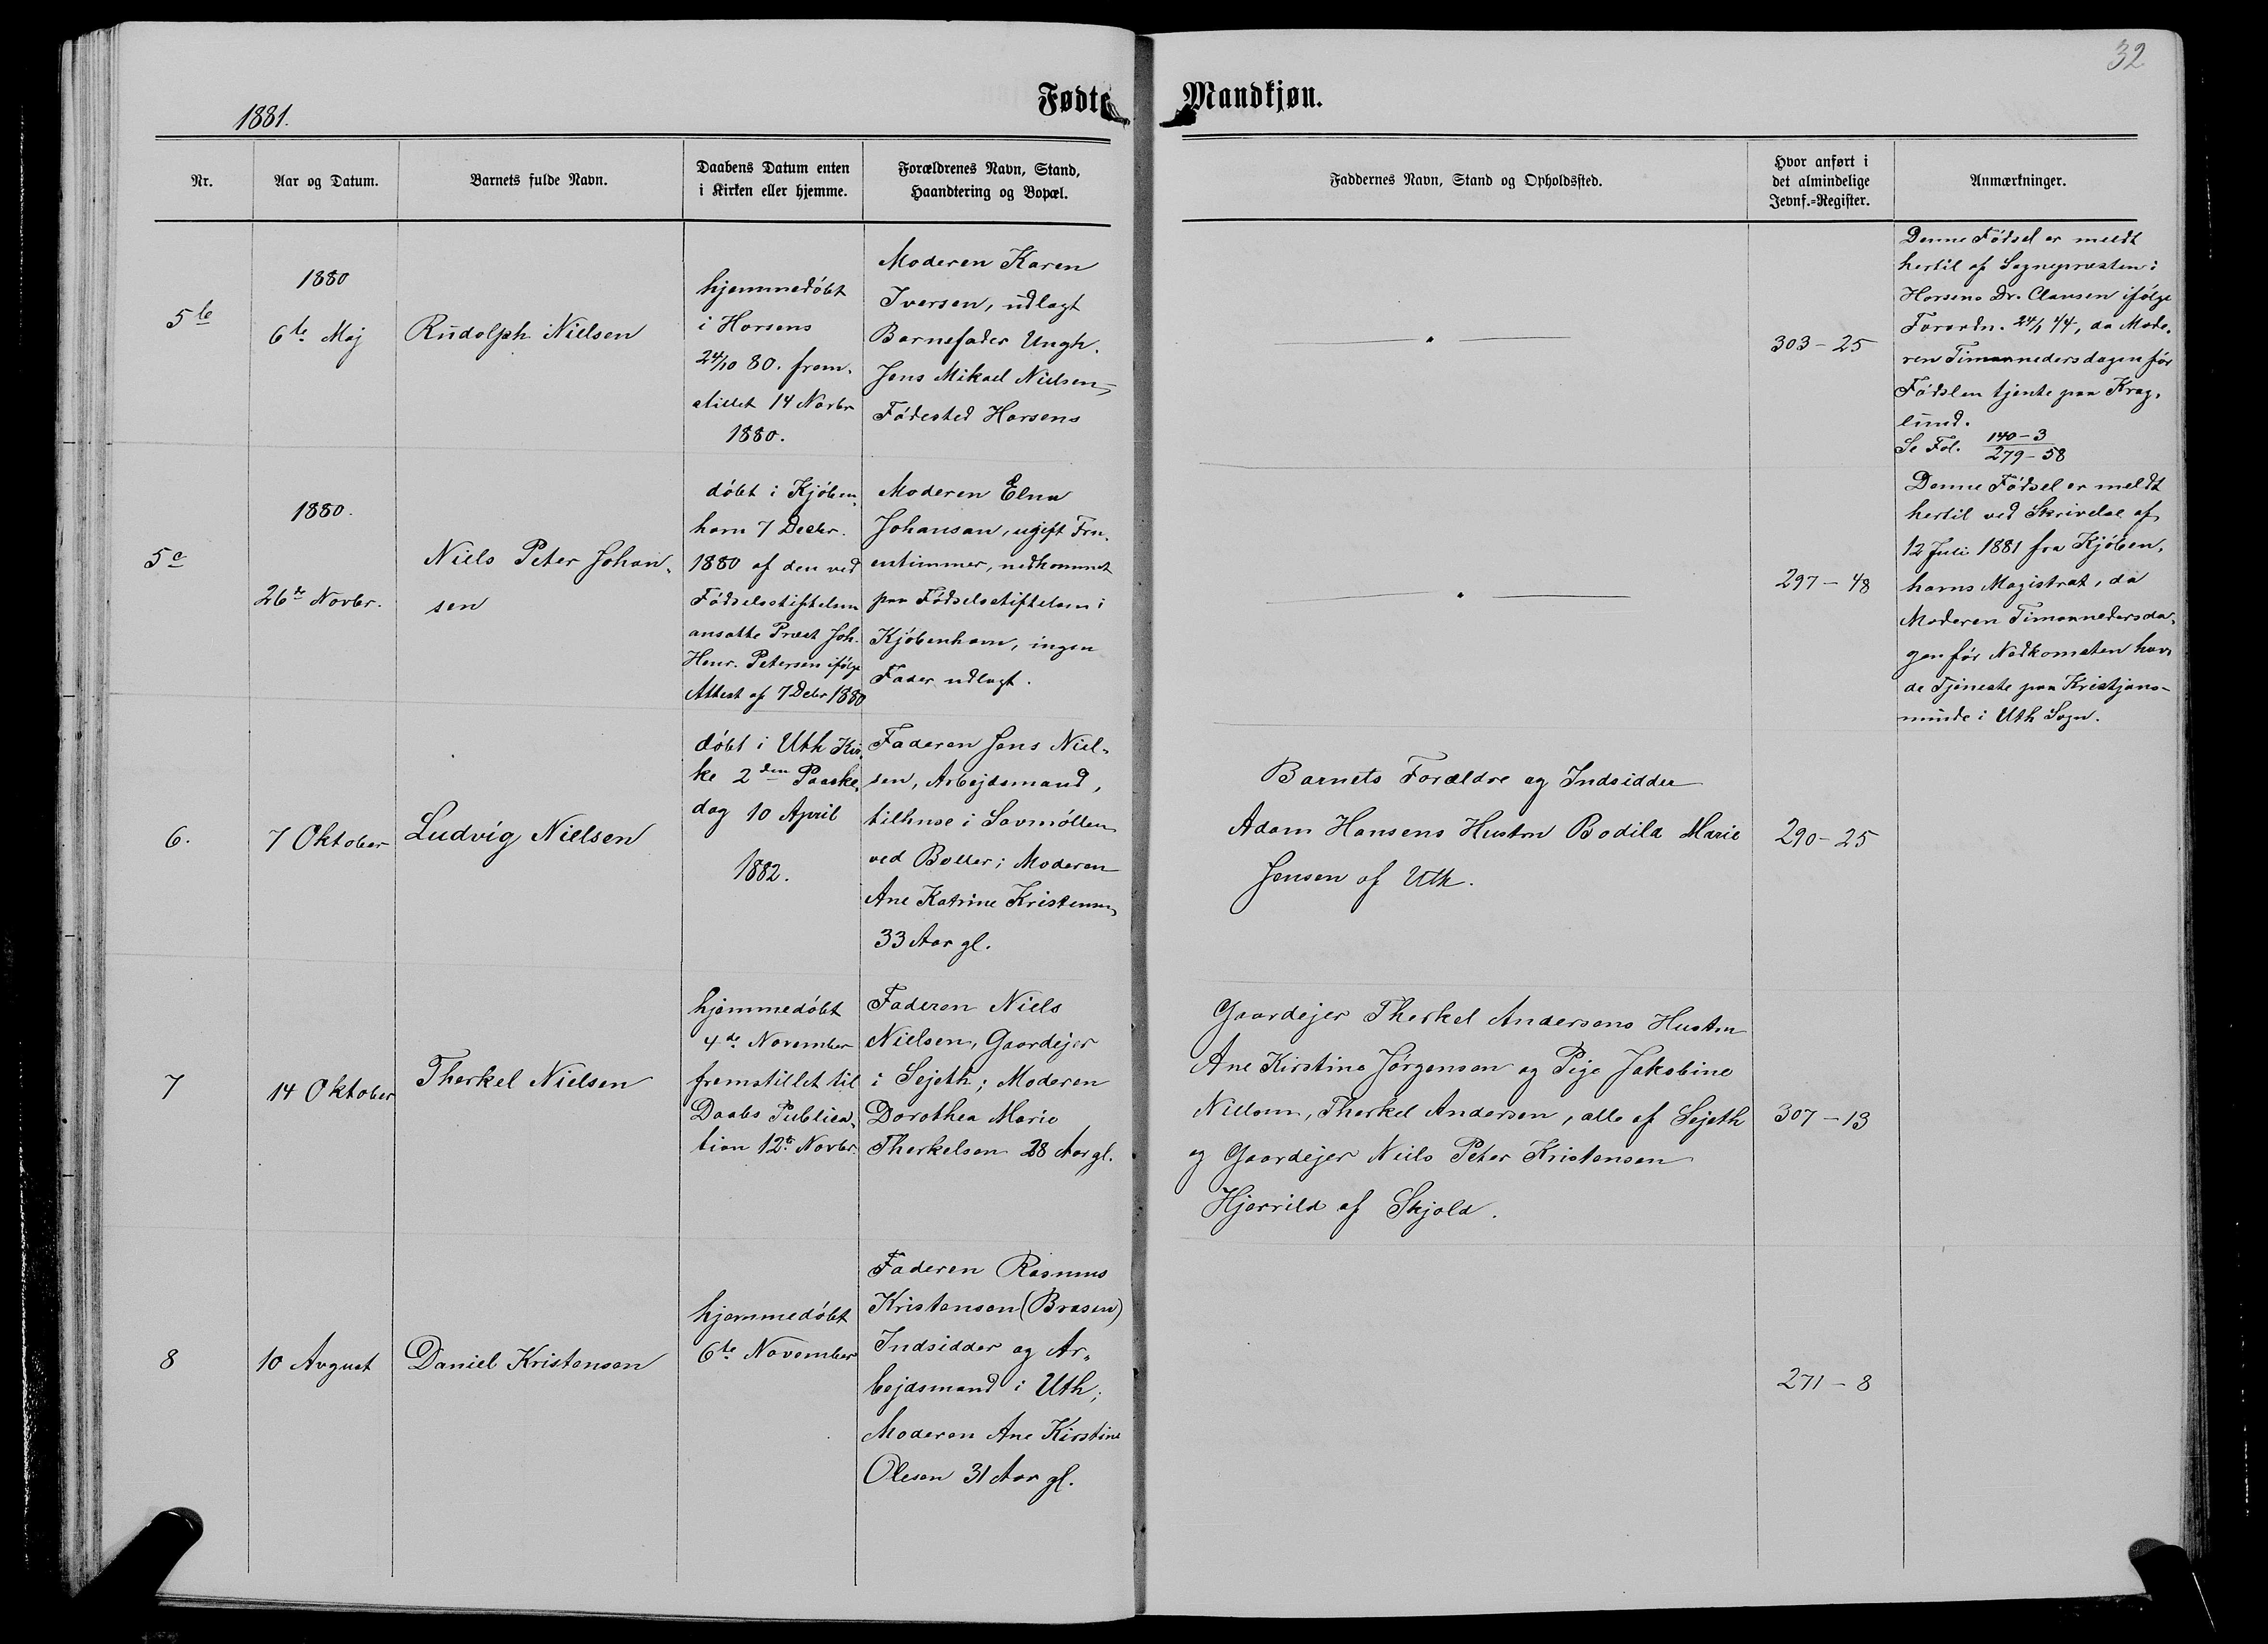 32
1881.
Fødte
Mandkjøn.
Nr.
Aar og Datum.
Barnets fulde Navn.
Daabens Datum enten
i Kirken eller hjemme.
Forældrenes Navn, Stand,
Haandtering og Bopæl.
Faddernes Navn, Stand og Opholdssted.
Hvor anført i
det almindelige
Jevnf.=Register.
Anmærkninger.
5
1880
6te Maj
Rudolph Nielsen
hjemmedöbt
i Horsens
24/10 80. frem-
stillet 14 Novbr
1880.
Moderen Karen
Iversen, udlagt
Barnefader Ungk.
Jens Mikael Nielsen,
Födested Horsens
303 - 25
Denne Födsel er meldt
hertil af Sognepræsten i
Horsens Dr. Clausen ifölge
Forordn. 24/1 44, da Mode-
ren Timaanedersdagen för
Födslen tjente paa Krag-
lund.
Se Fol. 140-3
279-58
5c
1880.
26te Novbr.
Niels Peter Johan-
sen
döbt i Kjöben-
havn 7 Decbr.
1880 af den ved
Födselsstiftelsen
ansatte Præst Joh.
Henr. Petersen ifölge
Attest af 7 Decbr 1880
Moderen Elna
Johansan, ugift Fru-
entimmer, nedkommet
paa Födselsstiftelsen i
Kjöbenhavn, ingen
Fader udlagt.
297 - 48
Denne Födsel er meldt
hertil ved Skrivelse af
12 Juli 1881 fra Kjöben-
havns Magistrat, da
Moderen Timaanedersda-
gen för Nedkomsten hav-
de Tjeneste paa Kristjans-
minde i Uth Sogn.
6.
7 Oktober
Ludvig Nielsen
döbt i Uth Kir-
ke 2den Paaske-
dag 10 April
1882.
Faderen Jens Niel-
sen, Arbejdsmand,
tilhuse i Savmöllen
ved Boller; Moderen
Ane Katrine Kristensen,
33 Aar gl.
Barnets Forældre og Indsidder
Adam Hansens Hustru Bodild Marie
Jensen af Uth.
290 - 25
7
14 Oktober
Therkel Nielsen
hjemmedöbt
4de November
fremstillet til
Daabs Publica-
tion 12te Novbr.
Faderen Niels
Nielsen, Gaardejer
i Sejeth; Moderen
Dorothea Marie
Therkelsen 28 Aar gl.
Gaardejer Therkel Andersens Hustru
Ane Kirstine Jörgensen og Pige Jakobine
Nielsen, Therkel Andersen, alle af Sejeth
og Gaardejer Niels Peter Kristensen
Hjerrild af Skjold.
307 - 13
8
10 Avgust
Daniel Kristensen
hjemmedöbt
6te November
Faderen Rasmus
Kristensen (Brasen)
Indsidder og Ar-
bejdsmand i Uth;
Moderen Ane Kirstine
Olesen 31 Aar gl.
271 - 8